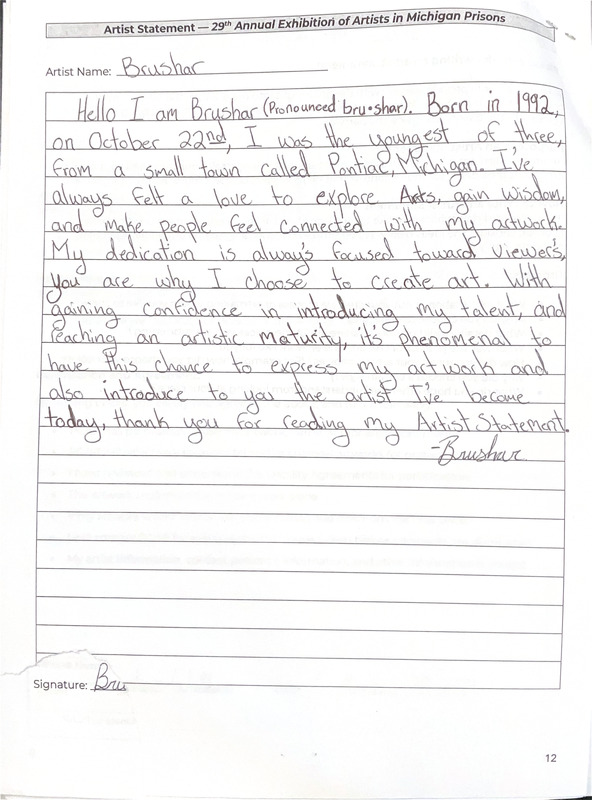 Artist Statement — 29th Annual Exhibition of Artists in Michigan Prisons
Artist Name: Brushar
Hello I am Brushar (Pronounced bru•shar). Born in 1992,
on October 22nd, I was the youngest of three,
from a small town called Pontiac, Michigan. I've
always felt a love to explore Arts, gain wisdom,
and make people feel connected with my artwork.
My dedication is always focused toward viewer's,
you are why I choose to create art. With
gaining confidence in introducing my talent, and
reaching an artistic maturity, it's phenomenal to
have this chance to express my artwork and
also introduce to you the artist I've become
today, thank you for reading my Artist Statement.
-Brushar
Signature: Bru
12